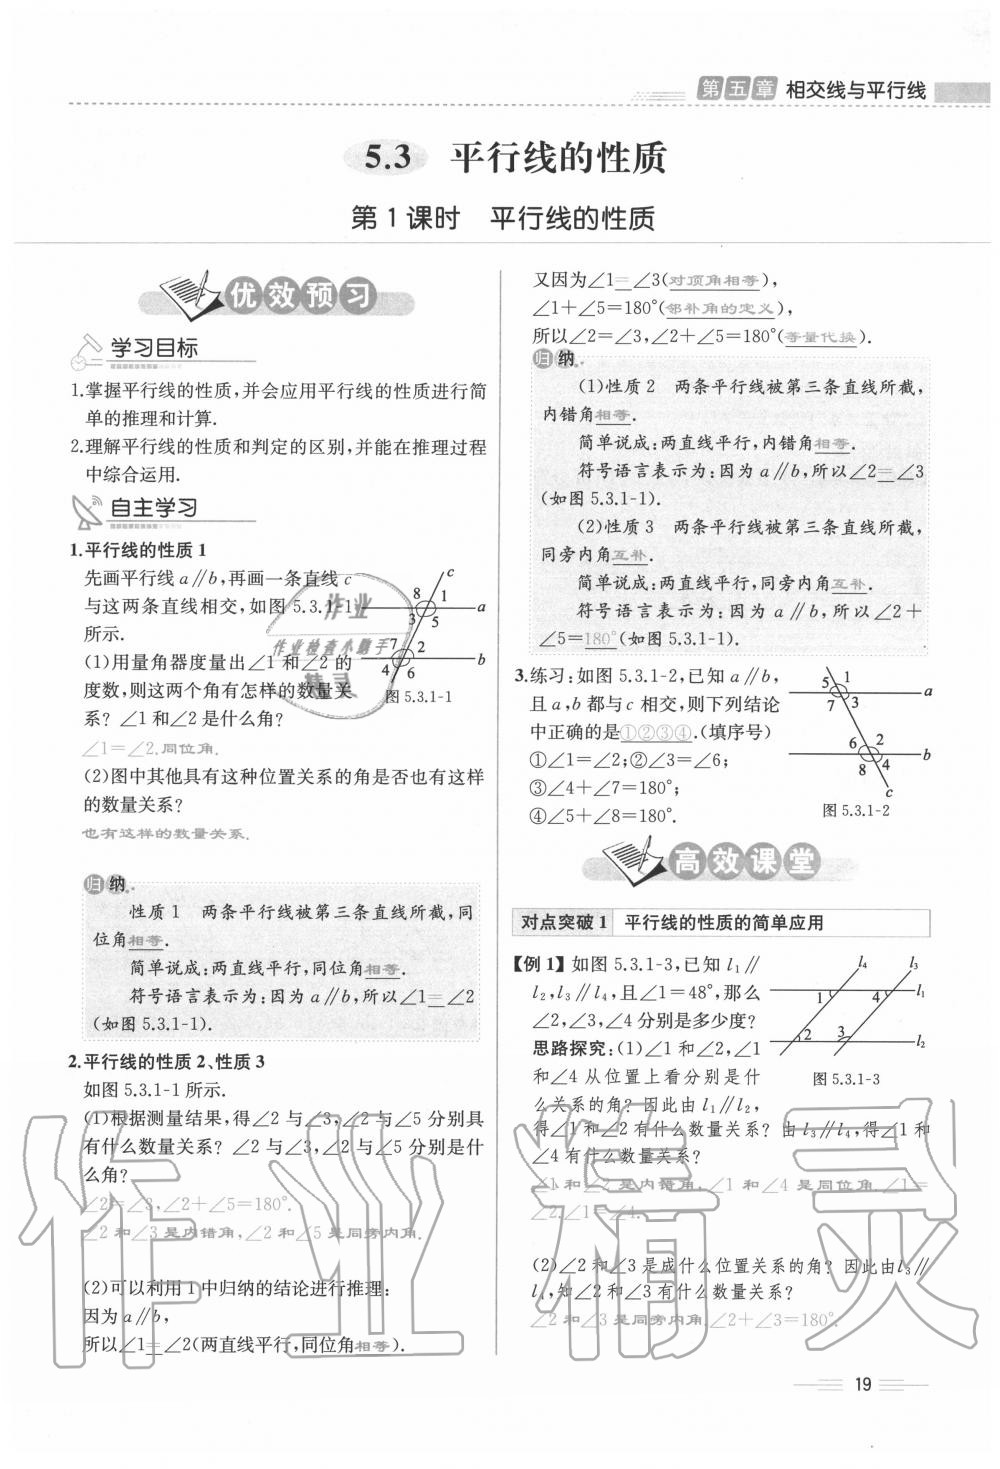 第五章 相交线与平行线
5.3 平行线的性质
第1课时 平行线的性质
优效预习
学习目标
1.掌握平行线的性质,并会应用平行线的性质进行简
单的推理和计算.
2.理解平行线的性质和判定的区别,并能在推理过程
中综合运用.
自主学习
1.平行线的性质1
先画平行线a∥b,再画一条直线c
与这两条直线相交,如图5.3.1-1
所示.
(1)用量角器度量出∠1和∠2的
度数,则这两个角有怎样的数量关
系?∠1和∠2是什么角?
∠1=∠2.同位角.
(2)图中其他具有这种位置关系的角是否也有这样
的数量关系?
也有这样的数量关系.
c
8 1
a
3 5
7 2
b
4 6
图5.3.1-1
归纳
性质1 两条平行线被第三条直线所截,同
位角相等.
简单说成:两直线平行,同位角相等.
符号语言表示为:因为a∥b,所以∠1=∠2
(如图5.3.1-1).
2.平行线的性质2、性质3
如图5.3.1-1所示.
(1)根据测量结果,得∠2与∠3,∠2与∠5分别具
有什么数量关系?∠2与∠3,∠2与∠5分别是什
么角?
∠2=∠3,∠2+∠5=180°.
∠2和∠3是内错角,∠2和∠5是同旁内角.
(2)可以利用1中归纳的结论进行推理:
因为a∥b,
所以∠1=∠2(两直线平行,同位角相等).
又因为∠1=∠3(对顶角相等),
∠1+∠5=180°(邻补角的定义),
所以∠2=∠3,∠2+∠5=180°(等量代换).
归纳
(1)性质2 两条平行线被第三条直线所截,
内错角相等.
简单说成:两直线平行,内错角相等.
符号语言表示为:因为a∥b,所以∠2=∠3
(如图5.3.1-1).
(2)性质3 两条平行线被第三条直线所截,
同旁内角互补.
简单说成:两直线平行,同旁内角互补.
符号语言表示为:因为a∥b,所以∠2+
∠5=180°(如图5.3.1-1).
3.练习:如图5.3.1-2,已知a∥b,
且a,b都与c相交,则下列结论
中正确的是①②③④.(填序号)
①∠1=∠2;②∠3=∠6;
③∠4+∠7=180°;
④∠5+∠8=180°.
5 1
a
7 3
6 2
b
8 4
c
图5.3.1-2
高效课堂
对点突破1 平行线的性质的简单应用
【例1】如图5.3.1-3,已知l₁∥
l₂,l₃∥l₄,且∠1=48°,那么
∠2,∠3,∠4分别是多少度?
思路探究:(1)∠1和∠2,∠1
和∠4从位置上看分别是什
么关系的角?因此由l₁∥l₂,
得∠1和∠2有什么数量关系?由l₃∥l₄,得∠1和
∠4有什么数量关系?
∠1和∠2是内错角,∠1和∠4是同位角.∠1=
∠2,∠1=∠4.
(2)∠2和∠3是成什么位置关系的角?因此由l₃∥
l₄,知∠2和∠3有什么数量关系?
∠2和∠3是同旁内角.∠2+∠3=180°.
l₄ l₃
1 4 l₁
2 3 l₂
图5.3.1-3
作业
作业检查小助手
精灵
作业精灵
19